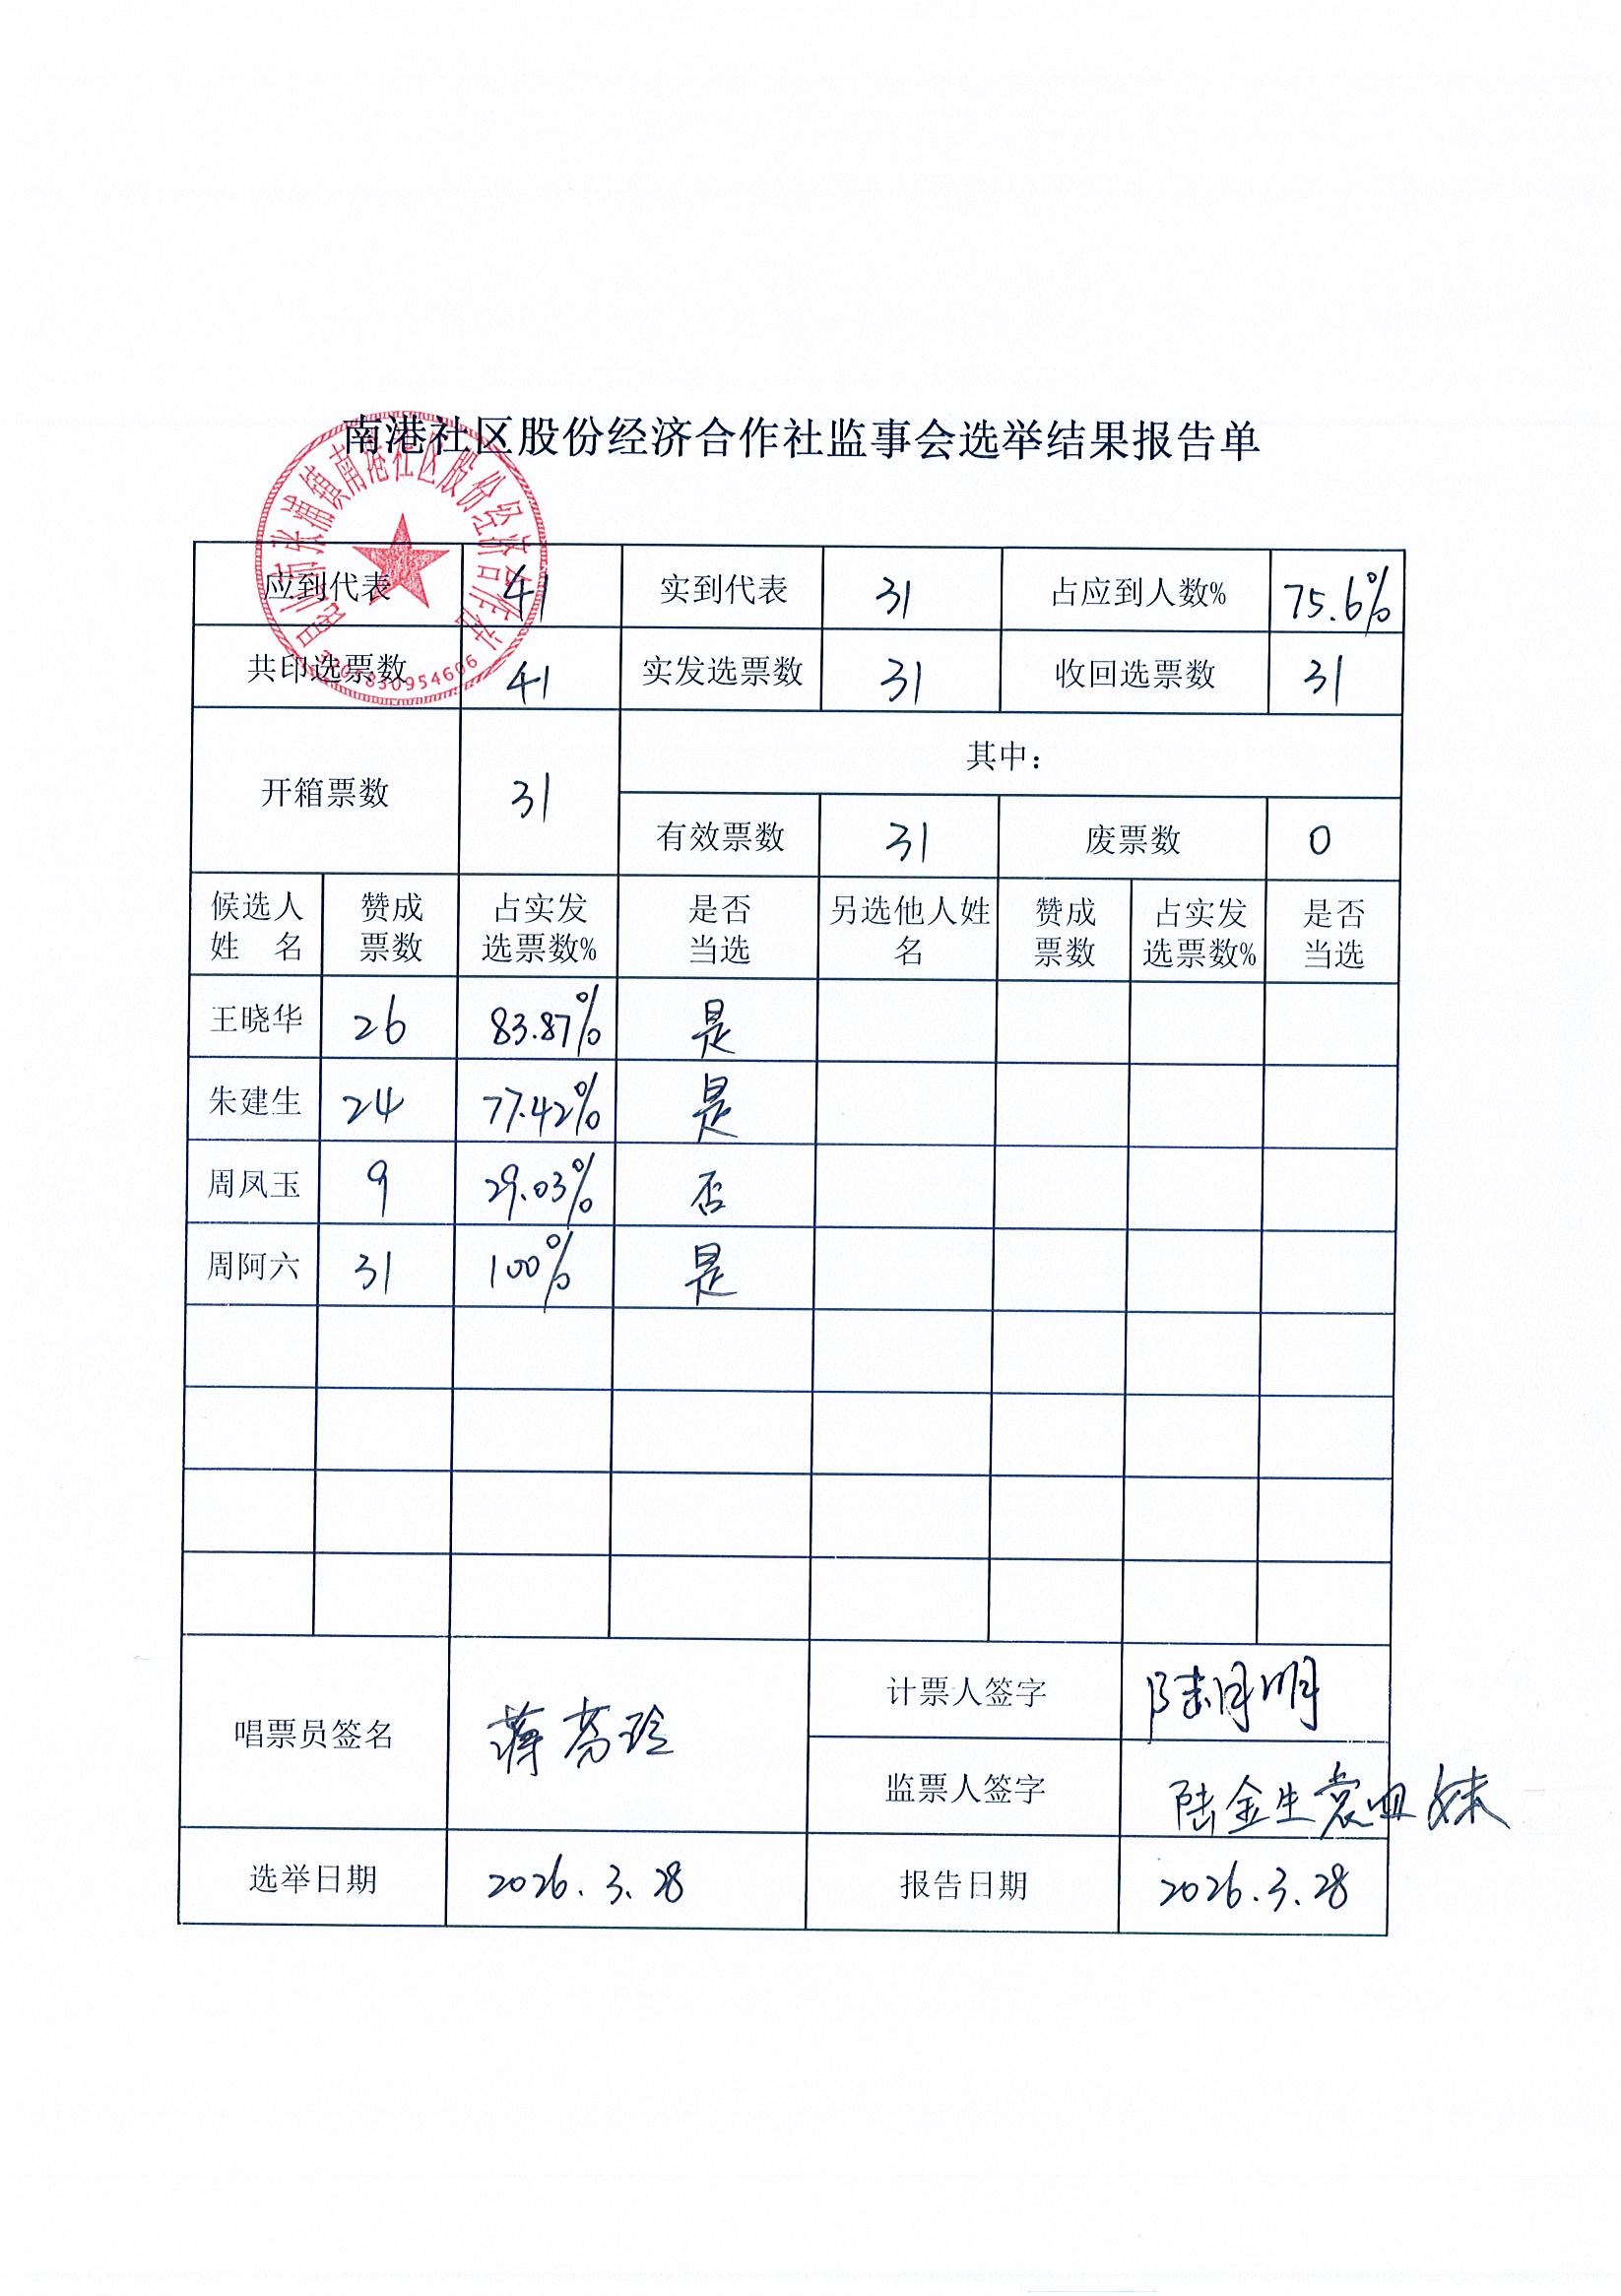 南港社区股份经济合作社监事会选举结果报告单
昆山市张浦镇南港社区股份经济合作社
3205830954606
应到代表 41 实到代表 31 占应到人数% 75.6%
共印选票数 41 实发选票数 31 收回选票数 31
开箱票数 31 其中：
有效票数 31 废票数 0
候选人姓 名 赞成票数 占实发选票数% 是否当选 另选他人姓名 赞成票数 占实发选票数% 是否当选
王晓华 26 83.87% 是
朱建生 24 77.42% 是
周凤玉 9 29.03% 否
周阿六 31 100% 是
唱票员签名 蒋芬玲 计票人签字 陆月明
监票人签字 陆金生 袁 妹
选举日期 2026.3.28 报告日期 2026.3.28